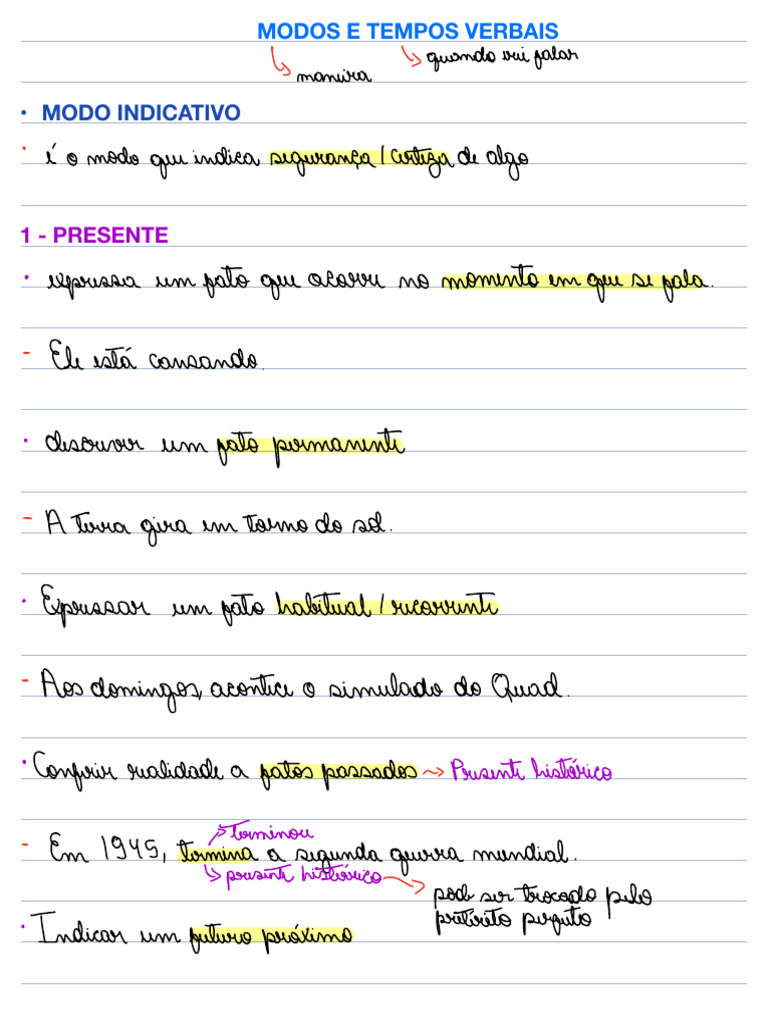 MODOS E TEMPOS VERBAIS
maneira
quando vai falar
• MODO INDICATIVO
• é o modo que indica segurança / certeza de algo
1 - PRESENTE
• expressa um fato que ocorre no momento em que se fala.
- Ele está cansando.
• descrever um fato permanente
- A terra gira em torno do sol.
• Expressar um fato habitual / recorrente
- Aos domingos, acontece o simulado do Quad.
• Conferir realidade a fatos passados → Presente histórico
terminou
- Em 1945, termina a segunda guerra mundial.
presente histórico → pode ser trocado pelo
pretérito perfeito
• Indicar um futuro próximo